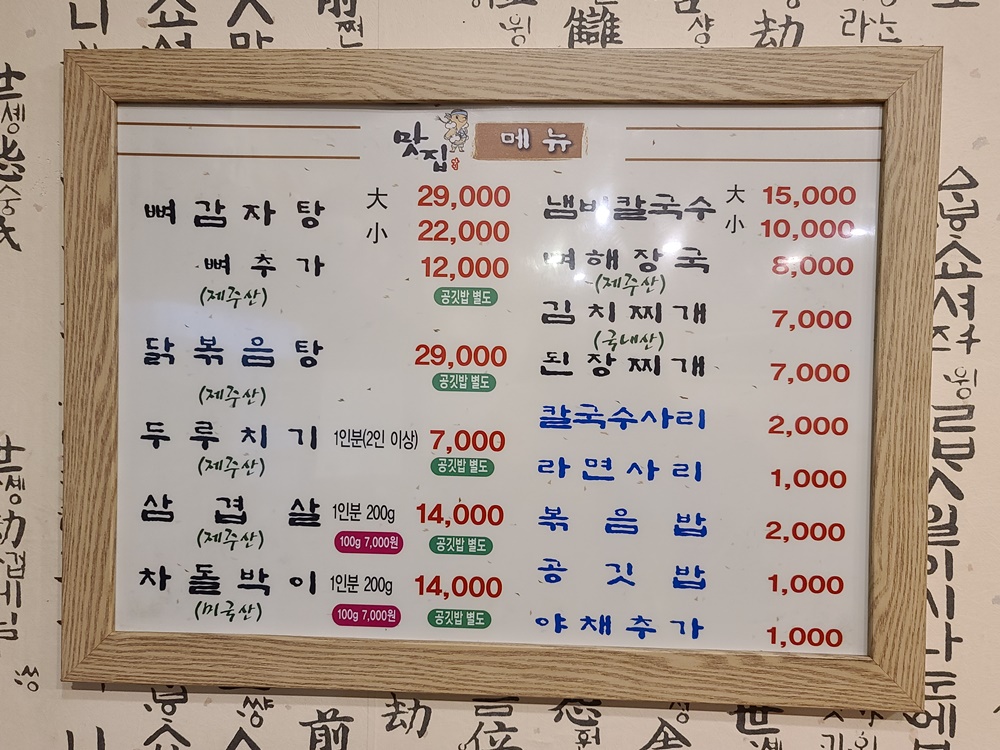 맛집
메뉴
뼈감자탕 大 29,000
小 22,000
뼈추가 12,000
(제주산) 공깃밥 별도
닭볶음탕 29,000
(제주산) 공깃밥 별도
두루치기 1인분(2인 이상) 7,000
(제주산) 공깃밥 별도
삼겹살 1인분 200g 14,000
(제주산) 100g 7,000원 공깃밥 별도
차돌박이 1인분 200g 14,000
(미국산) 100g 7,000원 공깃밥 별도
냄비칼국수 大 15,000
小 10,000
뼈해장국 8,000
(제주산)
김치찌개 7,000
(국내산)
된장찌개 7,000
칼국수사리 2,000
라면사리 1,000
볶음밥 2,000
공깃밥 1,000
야채추가 1,000